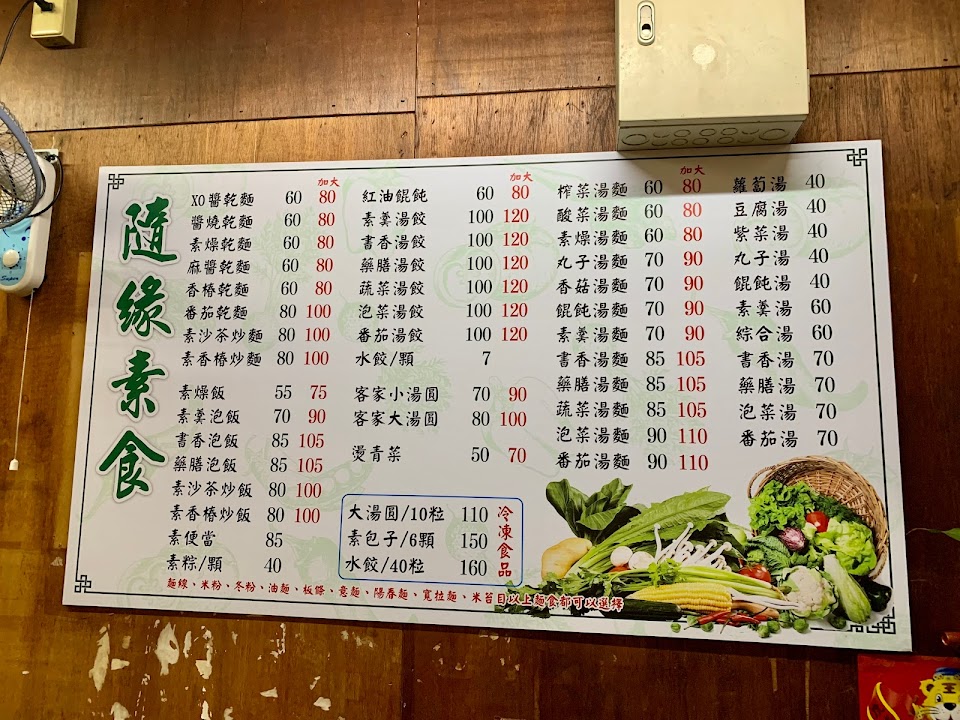 隨緣素食
加大
XO醬乾麵 60 80
醬燒乾麵 60 80
素燥乾麵 60 80
麻醬乾麵 60 80
香椿乾麵 60 80
番茄乾麵 80 100
素沙茶炒麵 80 100
素香椿炒麵 80 100
素燥飯 55 75
素羹泡飯 70 90
書香泡飯 85 105
藥膳泡飯 85 105
素沙茶炒飯 80 100
素香椿炒飯 80 100
素便當 85
素粽/顆 40
加大
紅油餛飩 60 80
素羹湯餃 100 120
書香湯餃 100 120
藥膳湯餃 100 120
蔬菜湯餃 100 120
泡菜湯餃 100 120
番茄湯餃 100 120
水餃/顆 7
客家小湯圓 70 90
客家大湯圓 80 100
燙青菜 50 70
冷凍食品
大湯圓/10粒 110
素包子/6顆 150
水餃/40粒 160
加大
榨菜湯麵 60 80
酸菜湯麵 60 80
素燥湯麵 60 80
丸子湯麵 70 90
香菇湯麵 70 90
餛飩湯麵 70 90
素羹湯麵 70 90
書香湯麵 85 105
藥膳湯麵 85 105
蔬菜湯麵 85 105
泡菜湯麵 90 110
番茄湯麵 90 110
蘿蔔湯 40
豆腐湯 40
紫菜湯 40
丸子湯 40
餛飩湯 40
素羹湯 60
綜合湯 60
書香湯 70
藥膳湯 70
泡菜湯 70
番茄湯 70
麵線、米粉、冬粉、油麵、板條、意麵、陽春麵、寬拉麵、米苔目以上麵食都可以選擇